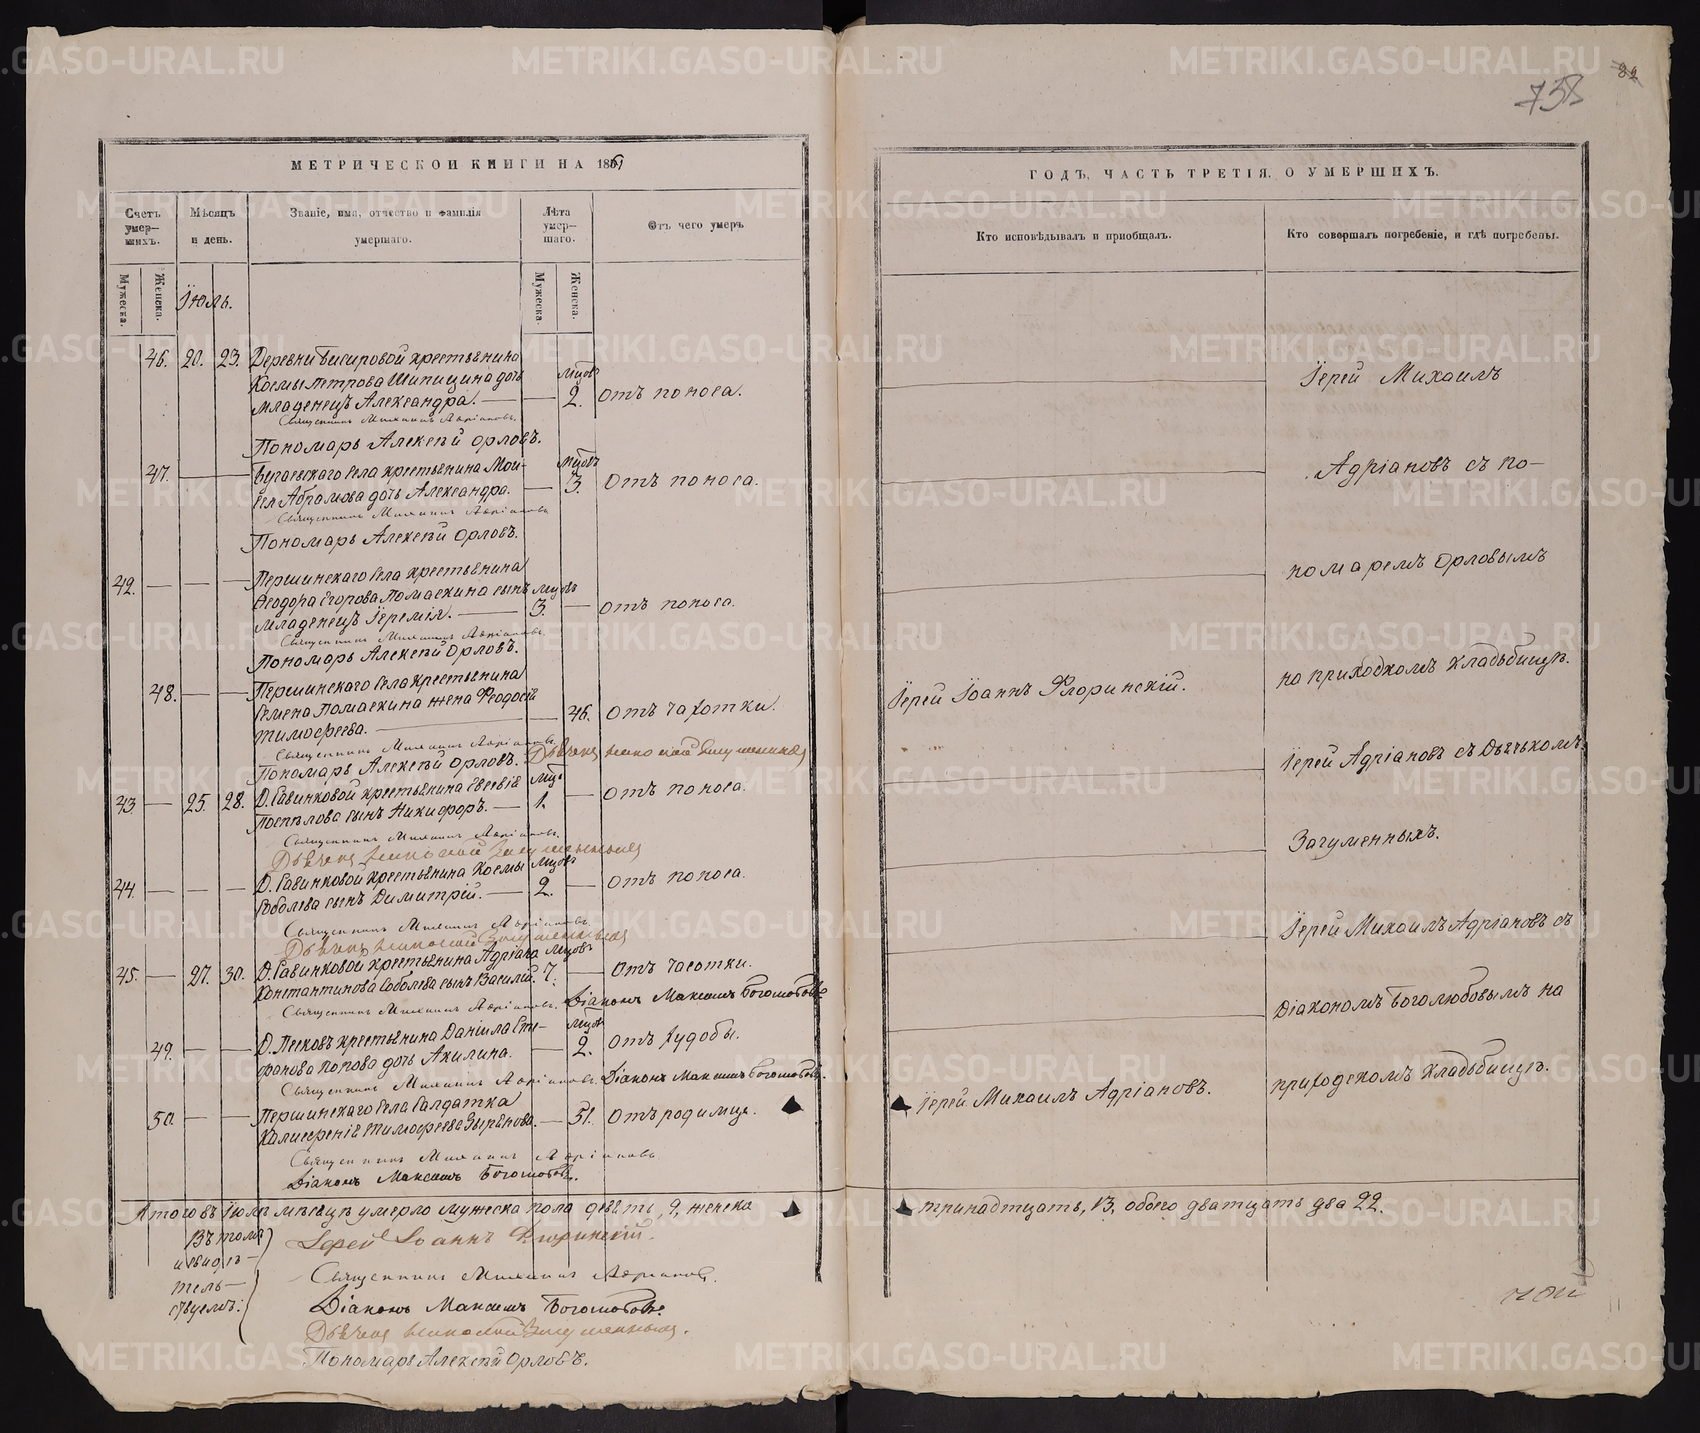 738
82
МЕТРИЧЕСКОЙ КНИГИ НА 1861
Счетъ умер-шихъ.
Мѣсяцъ и день.
Званіе, имя, отчество и фамилія умершаго.
Лѣта умер-шаго.
Отъ чего умеръ
Мужеска.
Женска.
Мужеска.
Женска.
Іюль.
46. 20. 23. Деревни крестьянина
Космы Петрова Шипицина дочь мцовъ
младенецъ Александра. — — 2. Отъ поноса.
Священникъ Михаилъ Адріановъ.
Пономарь Алексѣй Орловъ.
47. — — Бугаевскаго села крестьянина Мои- мцовъ
сея Абрамова дочь Александра. — 3. Отъ поноса.
Священникъ Михаилъ Адріановъ
Пономарь Алексѣй Орловъ.
42. — — — Першинскаго села крестьянина
Ѳеодора Егорова Томаскина сынъ мцовъ
младенецъ Іеремія. — 3. — Отъ поноса.
Священникъ Михаилъ Адріановъ.
Пономарь Алексѣй Орловъ.
48. — — Першинскаго села крестьянина
Семена Томаскина жена Ѳеодосія
Тимофеева. — — 46. Отъ чахотки.
Священникъ Михаилъ Адріановъ
Пономарь Алексѣй Орловъ. Дьячекъ Загуменныхъ
43. — 25. 28. Д. Савинковой крестьянина Евсевія мцъ
Поспѣлова сынъ Никифоръ. — 1. — Отъ поноса.
Священникъ Михаилъ Адріановъ.
Дьячекъ Загуменныхъ
44. — — — Д. Савинковой крестьянина Космы мцовъ
Соболева сынъ Димитрій. — 2. — Отъ поноса.
Священникъ Михаилъ Адріановъ
Дьячекъ Загуменныхъ
45. — 27. 30. Д. Савинковой крестьянина Адріана мцовъ
Константинова Соболева сынъ Василій. 7. — Отъ чесотки.
Священникъ Михаилъ Адріановъ. Діаконъ Максимъ Боголюбовъ
49. — — Д. Песковъ крестьянина Даніила Епи- мцовъ
фанова Попова дочь Акилина. — 2. Отъ худобы.
Священникъ Михаилъ Адріановъ. Діаконъ Максимъ Боголюбовъ.
50. — — Першинскаго села салдатка
Тимофеева Зырянова. — 51. Отъ родимца.
Священникъ Михаилъ Адріановъ
Діаконъ Максимъ Боголюбовъ.
А того въ Іюлѣ мѣсяцѣ умерло мужеска пола девять, 9, женска
Въ томъ
и свидѣ-
тель-
ствуемъ:
Іерей Іоаннъ Флоринскій.
Священникъ Михаилъ Адріановъ.
Діаконъ Максимъ Боголюбовъ.
Дьячекъ Загуменныхъ.
Пономарь Алексѣй Орловъ.
ГОДЪ, ЧАСТЬ ТРЕТІЯ, О УМЕРШИХЪ.
Кто исповѣдывалъ и пріобщалъ.
Кто совершалъ погребеніе, и гдѣ погребены.
Іерей Михаилъ
Адріановъ съ по-
номаремъ Орловымъ
Іерей Іоаннъ Флоринскій.
на приходскомъ кладьбищѣ.
Іерей Адріановъ съ Дьячкомъ
Загуменныхъ.
Іерей Михаилъ Адріановъ съ
Діакономъ Боголюбовымъ на
Іерей Михаилъ Адріановъ.
приходскомъ кладьбищѣ.
тринадтцать, 13, обоего дватцать два 22.
METRIKI.GASO-URAL.RU